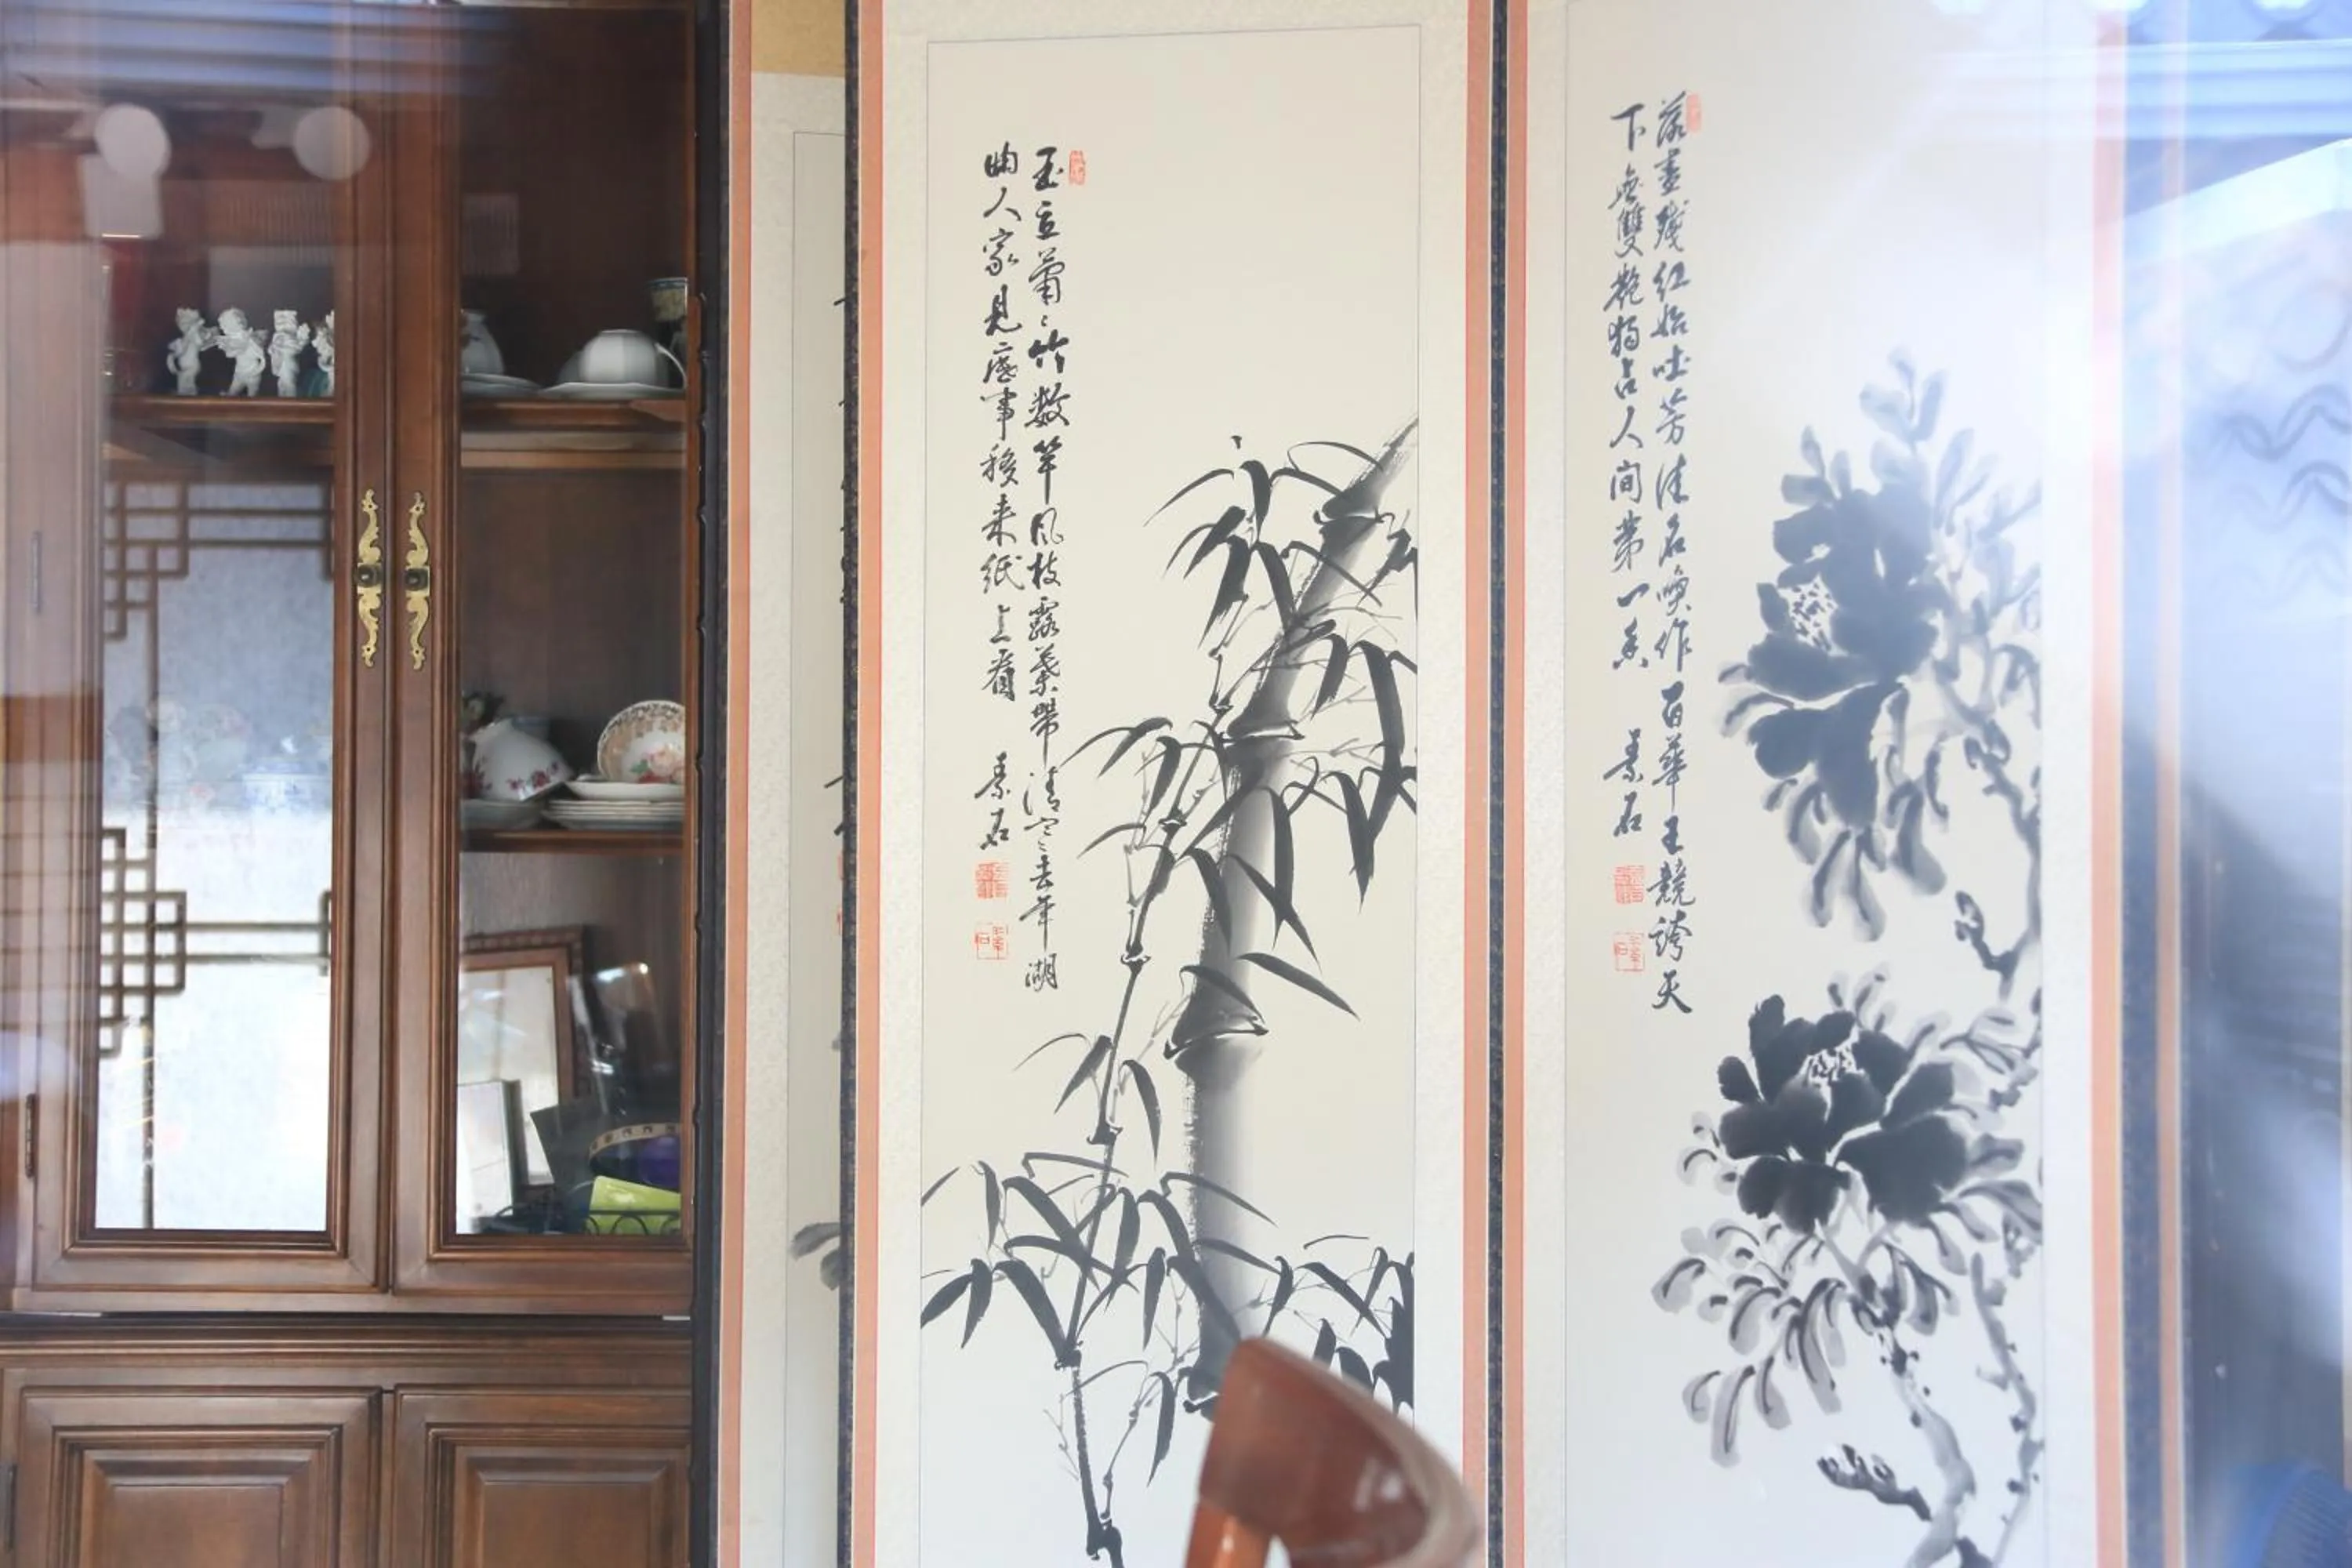 落盡殘紅始吐芳佳名喚作百華王競誇天
下無雙艶獨占人间第一香 素石
玉立蕭〻竹数竿風枝露葉帶清寒去年湖
曲人家見底事移来紙上看 素石